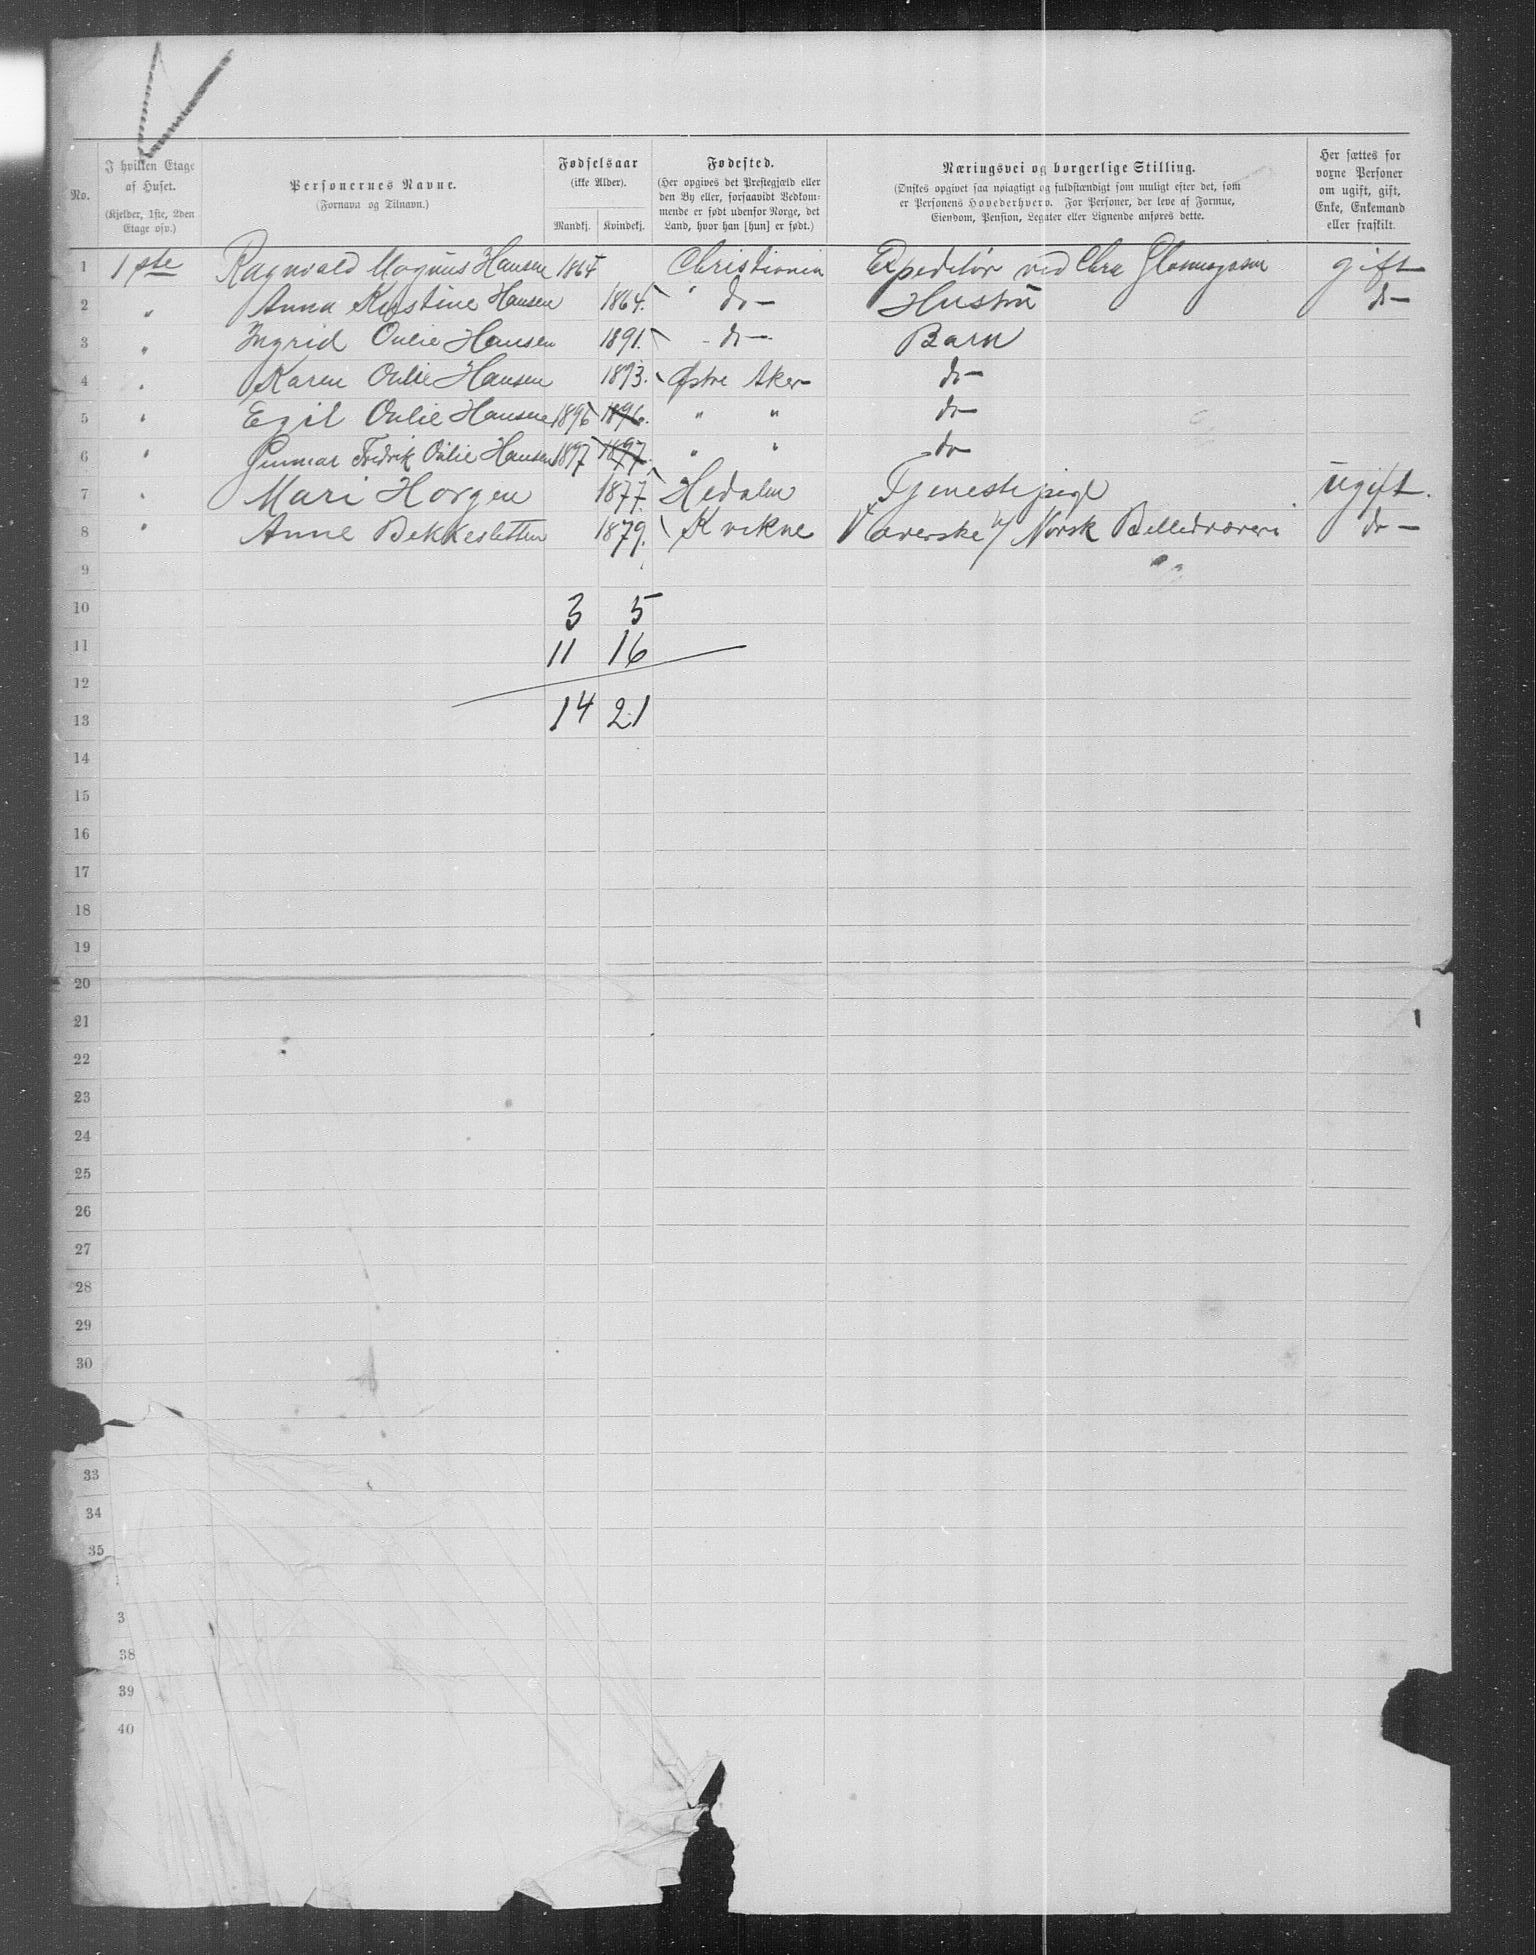 No.
I hvilken Etage af Huset.
(Kjelder, 1ste, 2den Etage osv.)
Personernes Navne.
(Fornavn og Tilnavn.)
Fødselsaar
(ikke Alder).
Mandkj. Kvindekj.
Fødested.
(Her opgives det Prestegjæld eller
den By eller, forsaavidt Vedkom-
mende er født udenfor Norge, det
Land, hvor han [hun] er født.)
Næringsvei og borgerlige Stilling.
(Ønskes opgivet saa nøiagtigt og fuldstændigt som muligt efter det, som
er Personens Hovederhverv. For Personer, der leve af Formue,
Eiendom, Pension, Legater eller Lignende anføres dette.
Her sættes for
voxne Personer
om ugift, gift,
Enke, Enkemand
eller fraskilt.
1 1ste Ragnvald Magnus Hansen 1864 Christiania Expeditør ved Chra Glasmagasin gift
2 " Anna Kirstine Hansen 1864. " do - Hustru do -
3 " Ingrid Onlie Hansen 1891. - do - Barn
4 " Karen Onlie Hansen 1893. Østre Aker do
5 " Egil Onlie Hansen 1896 1896. " " do
6 " Gunnar Fredrik Onlie Hansen 1897 1897. " " do
7 " Mari Horgen 1877. Hedalen Tjenestepige Ugift.
8 " Anne Bekkesletten 1879. Kvikne Væverske v/ Norsk Billedvæveri do -
9
10 3 5
11 11 16
12
13 14 21
14
15
16
17
18
19
20
21
22
23
24
25
26
27
28
29
30
33
34
35
3
38
39
40